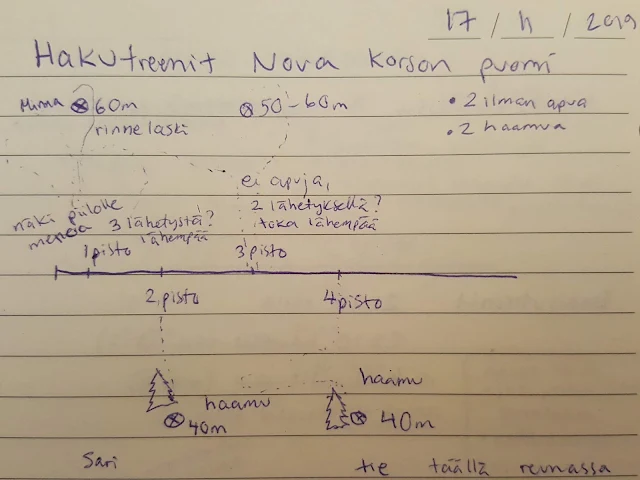 17 / 11 / 2019
Hakutreenit Nova Korson puomi
Minna 60m 50-60m • 2 ilman apua
rinne laski • 2 haamua
ei apuja,
näki piilolle 2 lähetyksellä?
menoa 3 lähetystä? toka lähempää
lähempää
1 pisto 3 pisto
2 pisto 4 pisto
haamu
haamu
40m 40m
Sari
tie täällä reunassa